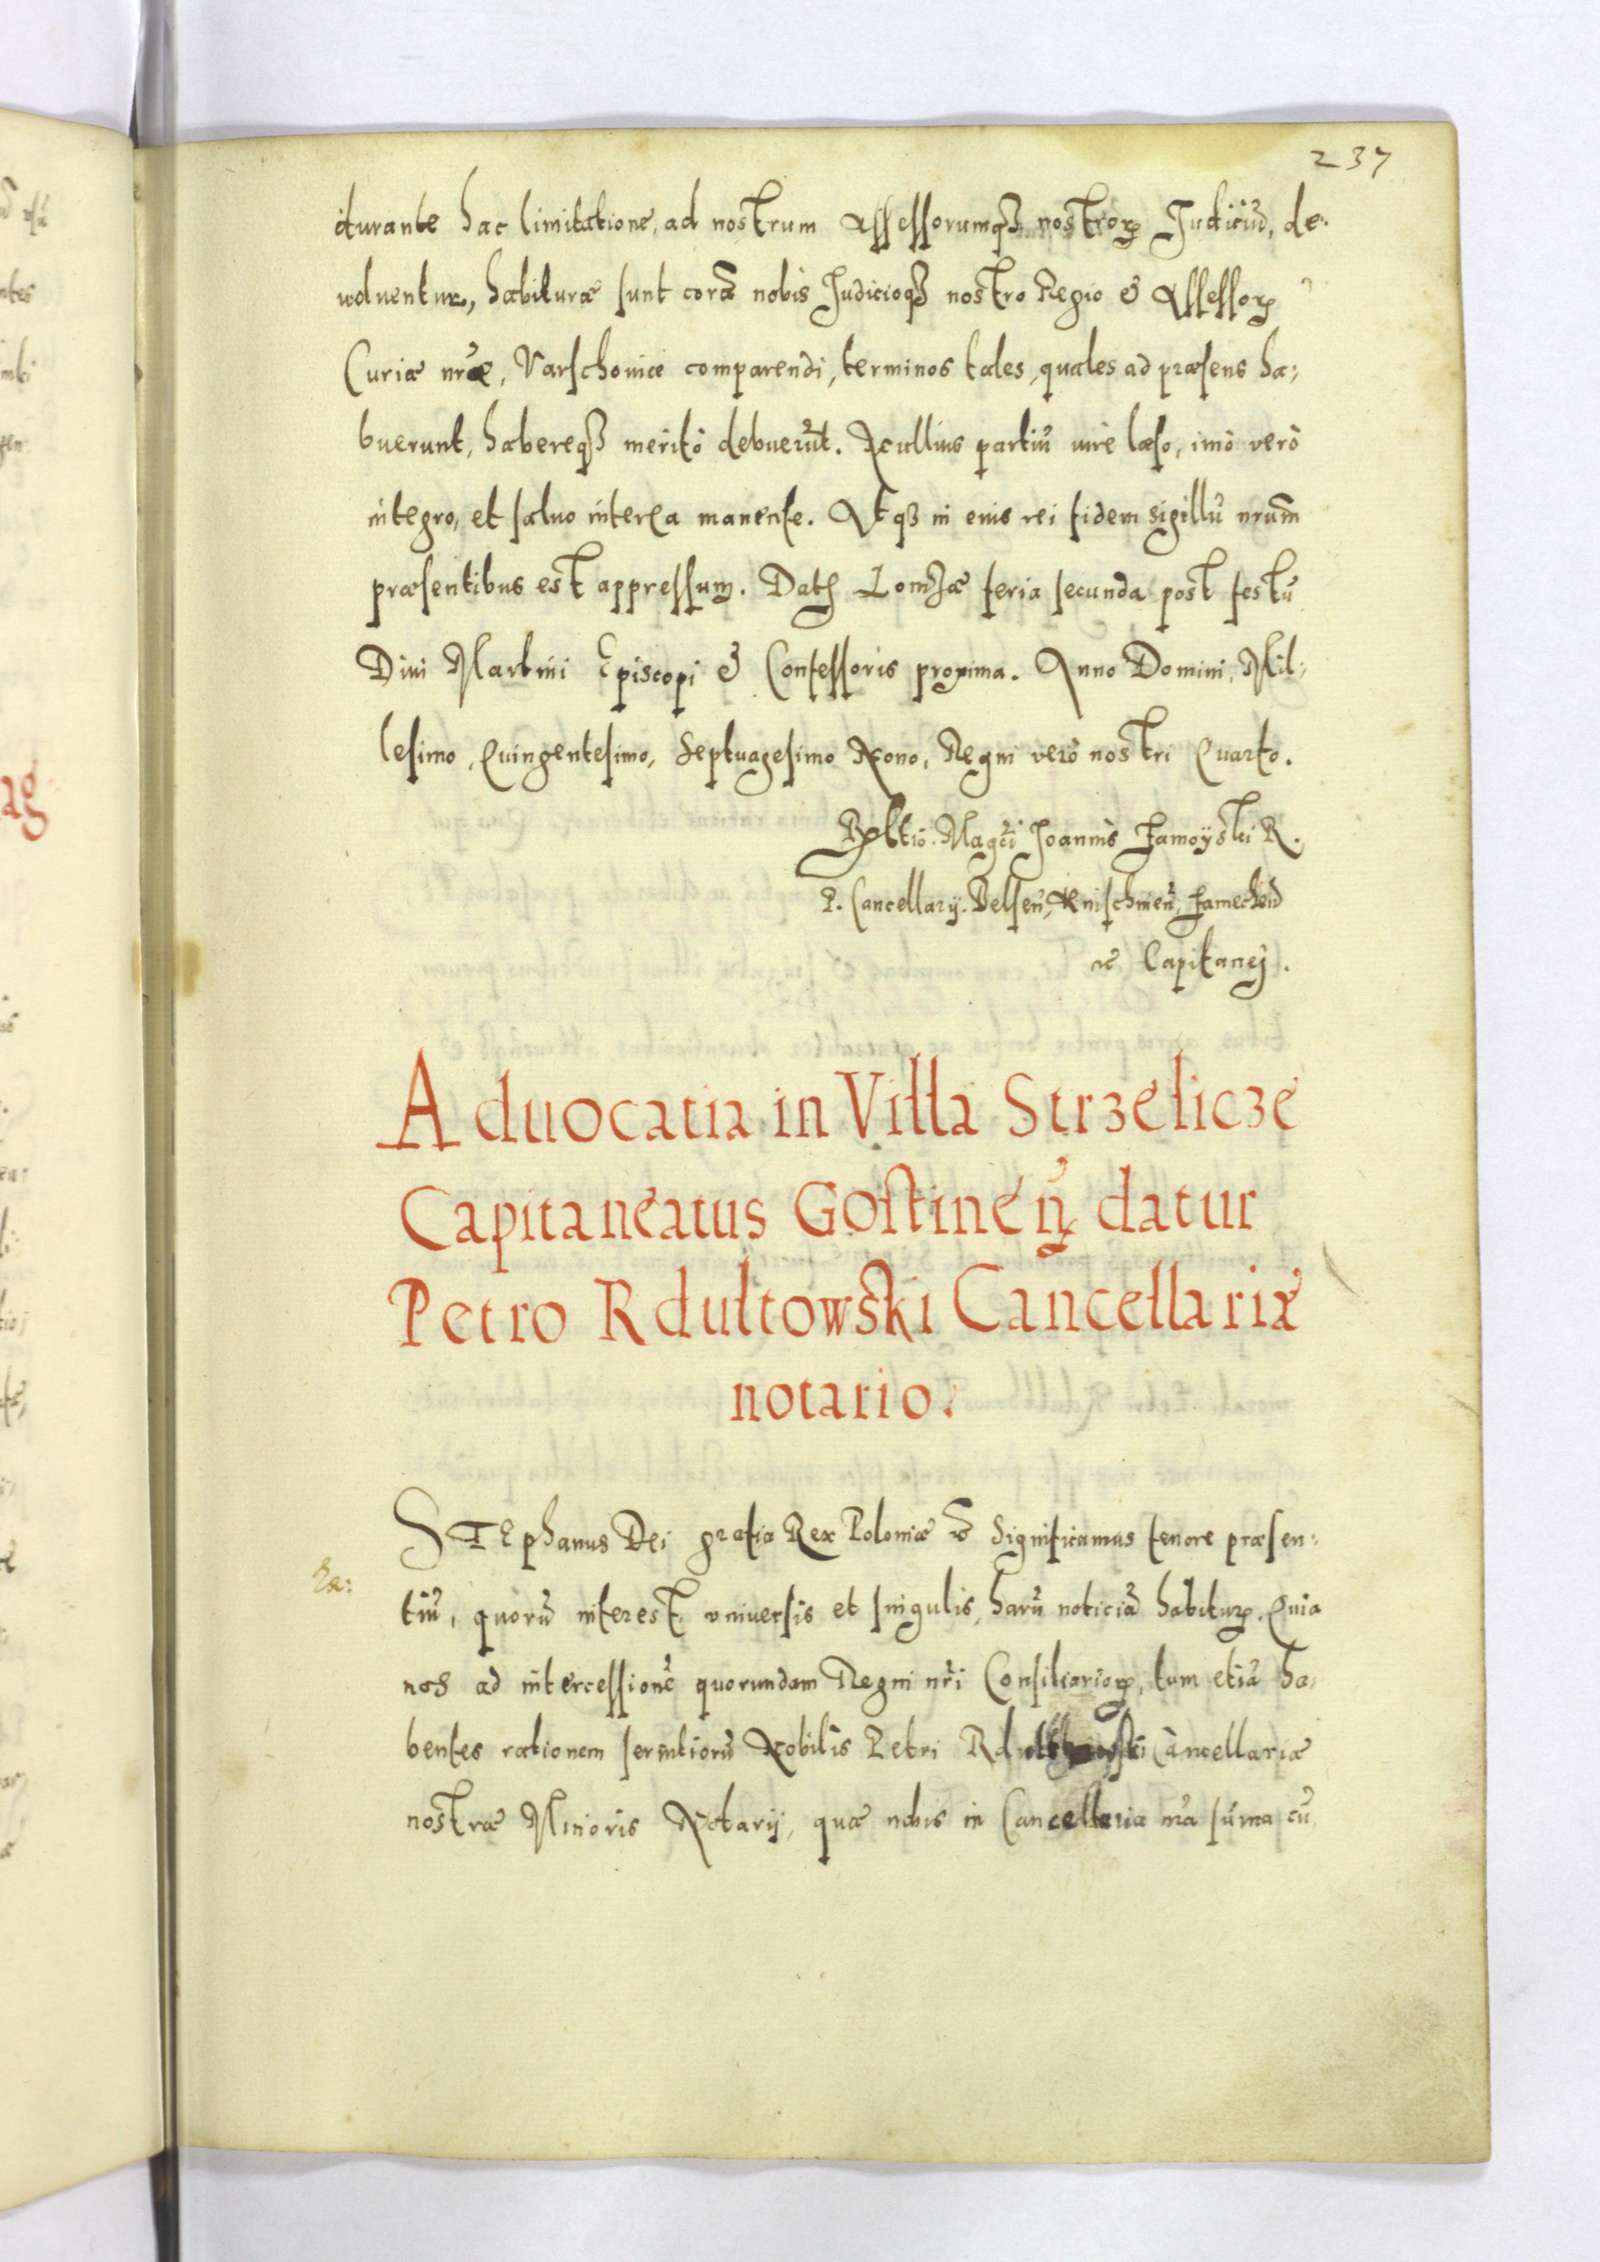 237
durante hac limitatione, ad nostrum Assessorumqꝫ nostroꝝ Judiciũ, de-
uoluentur, habituræ sunt corã nobis Judicioqꝫ nostro Regio & Assessoꝝ
Curiæ nr̃æ, Varschouiæ comparendi, terminos tales, quales ad præsens ha-
buerunt, habereqꝫ meritò debuerũt. Nullius partiũ iure læso, imò verò
integro, et saluo interea manente. Atqꝫ in eius rei fidem sigillũ nrũm
præsentibus est appressum. Datꝭ Lomzæ feria secunda post festũ
Diui Martini Episcopi & Confessoris proxima. Anno Domini, Mil-
lesimo, Quingentesimo, Septuagesimo Nono, Regni verò nostri Quarto.
Rẽltio. Magci Joannis Zamoyski R.
P. Cancellarij. Belsen̄, Knischinen̄, Zamechen̄
Capitanej.
Aduocatia in Villa Strzelicze
Capitaneatus Gostinen̄ datur
Petro Rdultowski Cancellariæ
notario.
STEphanus Dei gratia Rex Poloniæ Significamus tenore præsen-
tiũ, quorũ interest vniuersis et singulis, harũ noticiã habituꝝ. Quia
nos ad intercessionẽ quorundam Regni nr̃i Consiliarioꝝ, tum etiã ha-
bentes rationem seruitiorũ Nobilis Petri Rdultowski Cancellariæ
nostræ Minoris Notarij, quæ nobis in Cancellaria nr̃a sũma cũ